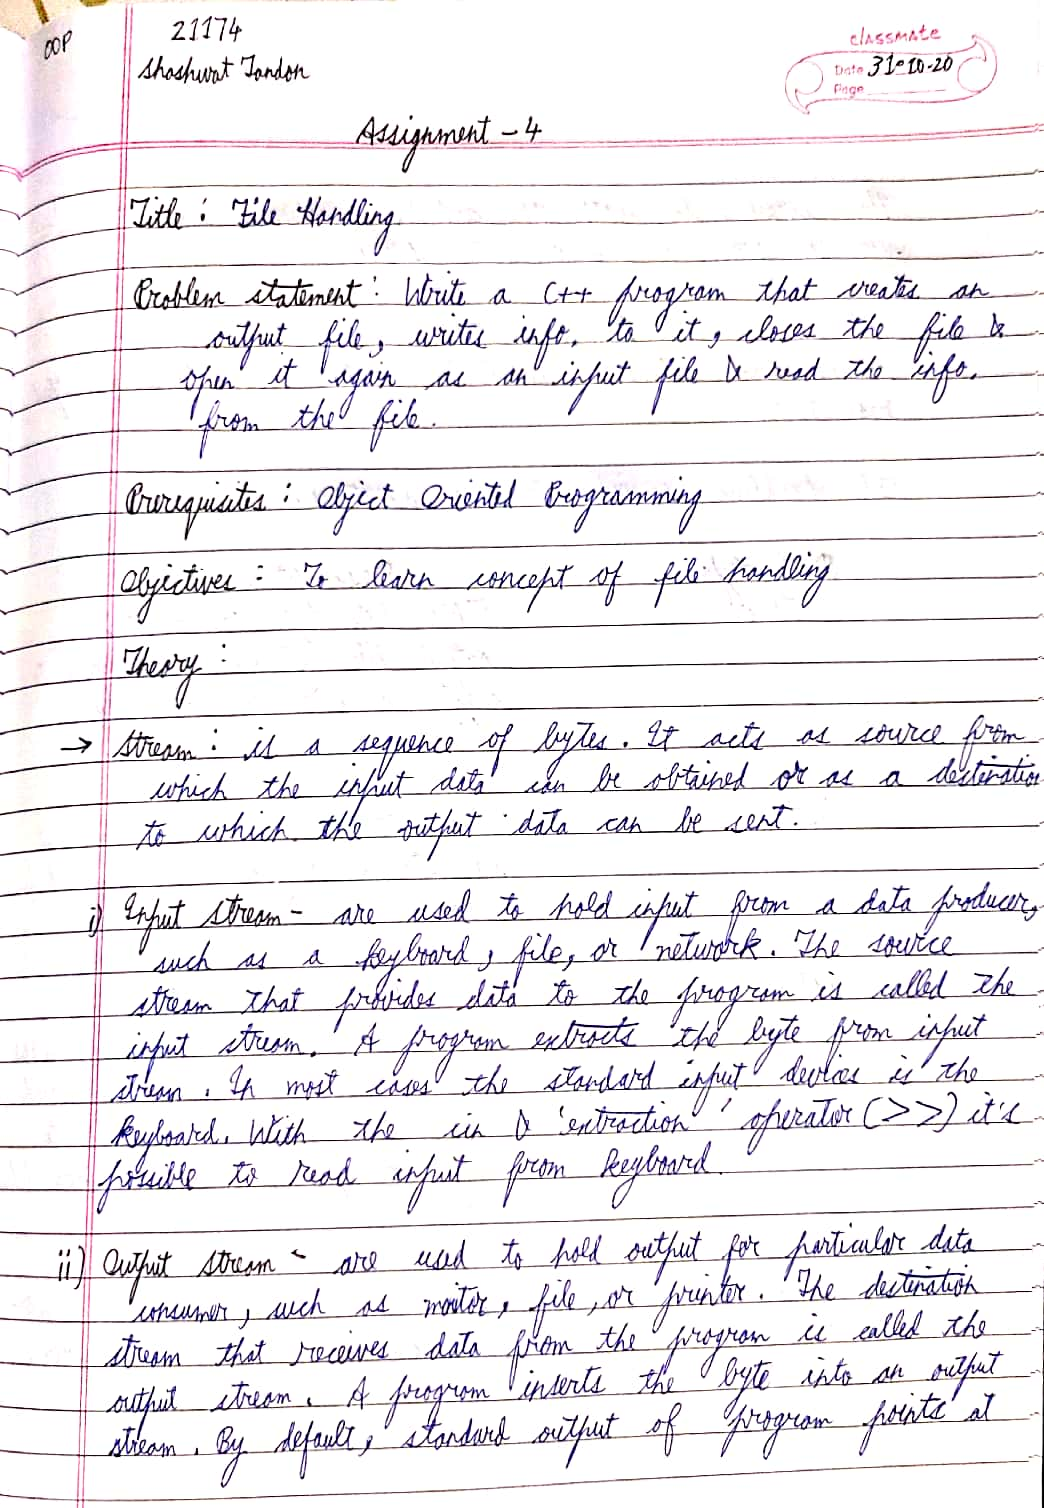 OOP
21174
Shashwat Tandon
classmate
Date 31-10-20
Page
Assignment - 4
Title : File Handling
Problem statement : Write a C++ program that creates an
output file, writes info. to it, closes the file &
open it again as an input file & read the info.
from the file.
Prerequisites : Object Oriented Programming
Objectives : To learn concept of file handling
Theory :
→ Stream : is a sequence of bytes. It acts as source from
which the input data can be obtained or as a destination
to which the output data can be sent.
i) Input stream - are used to hold input from a data producer,
such as a keyboard, file, or network. The source
stream that provides data to the program is called the
input stream. A program extracts the byte from input
stream. In most cases the standard input devices is the
keyboard. With the cin & 'extraction' operator (>>) it's
possible to read input from keyboard.
ii) Output stream - are used to hold output for particular data
consumer, such as monitor, file, or printer. The destination
stream that receives data from the program is called the
output stream. A program inserts the byte into an output
stream. By default, standard output of program points at